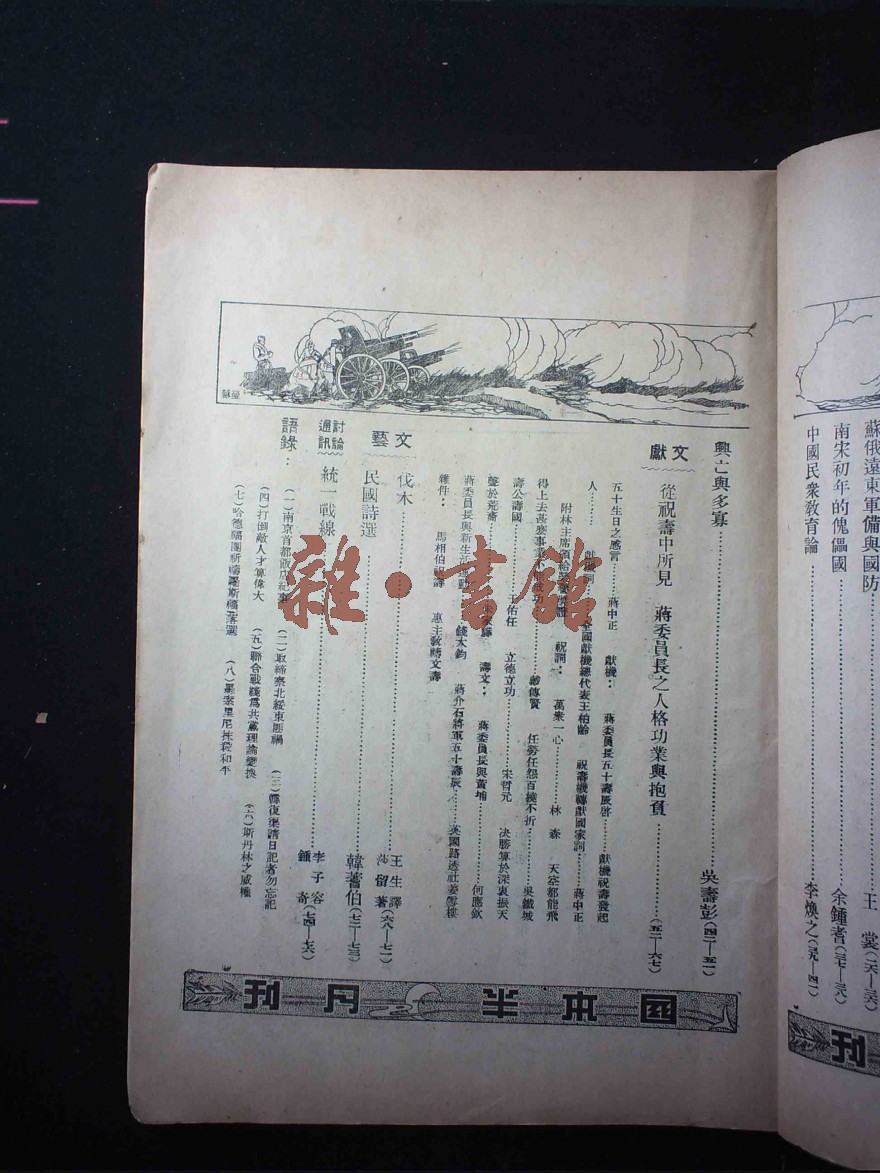 蘇俄遠東軍備與國防……王 裳(二六—三六)
南宋初年的傀儡國……余鍾耆(三七—三八)
中國民衆敎育論……李煥之(三九—四一)
興亡與多寡……吳壽彭(四二—五一)
文獻
從祝壽中所見 蔣委員長之人格功業與抱負……(五二—六七)
五十生日之感言……蔣中正 獻機：蔣委員長五十壽辰啓……獻機祝壽發起
人……全國獻機總代表王柏齡 祝壽機轉獻國家詞……蔣中正
附林主席頒給 祝詞：萬衆一心……林 森 天空都能飛
得上去甚麽事業 成功……戴傳賢 任勞任怨百撓不折……吳鐵城
壽公壽國……于佑任 立德立功……宋哲元 決勝算於深衷振天
聲於荒裔 壽文：蔣委員長與黃埔……何應欽
蔣委員長與新生活運動……錢大鈞 蔣介石將軍五十壽辰……英國路透社姜雪樓
雜件：馬相伯祝壽 惠主敎勝文壽
文藝
伐木……王生譯 莎留著(六八—七一)
民國詩選……韓蓍伯(七二—七三)
討論通訊
統一戰線……李子容 鍾 奇(七四—七六)
語錄：
(一)南京首都飯店紀事 (二)取締察北綏東匪禍 (三)韓復榘請日記者勿忘記
(四)打倒敵人才算偉大 (五)聯合戰綫爲共黨理論變換 (六)斯丹林之威權
(七)哈德福團祈禱羅斯福落選 (八)墨索里尼抹殺和平
國本半月刊
刊
雜·書館